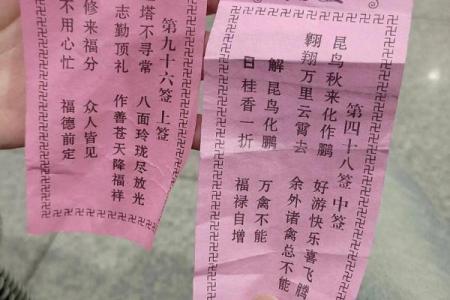 第九十六签 上签
塔不寻常 八面玲珑尽放光
志勤顶礼 作善苍天降福祥
修来福分 众人皆见
不用心忙 福德前定
第四十八签 中签
昆鸟秋来化作鹏 好游快乐喜飞腾
翱翔万里云霄去 余外诸禽总不能
解 昆鸟化鹏 万禽不能
日 桂香一折 福禄自增